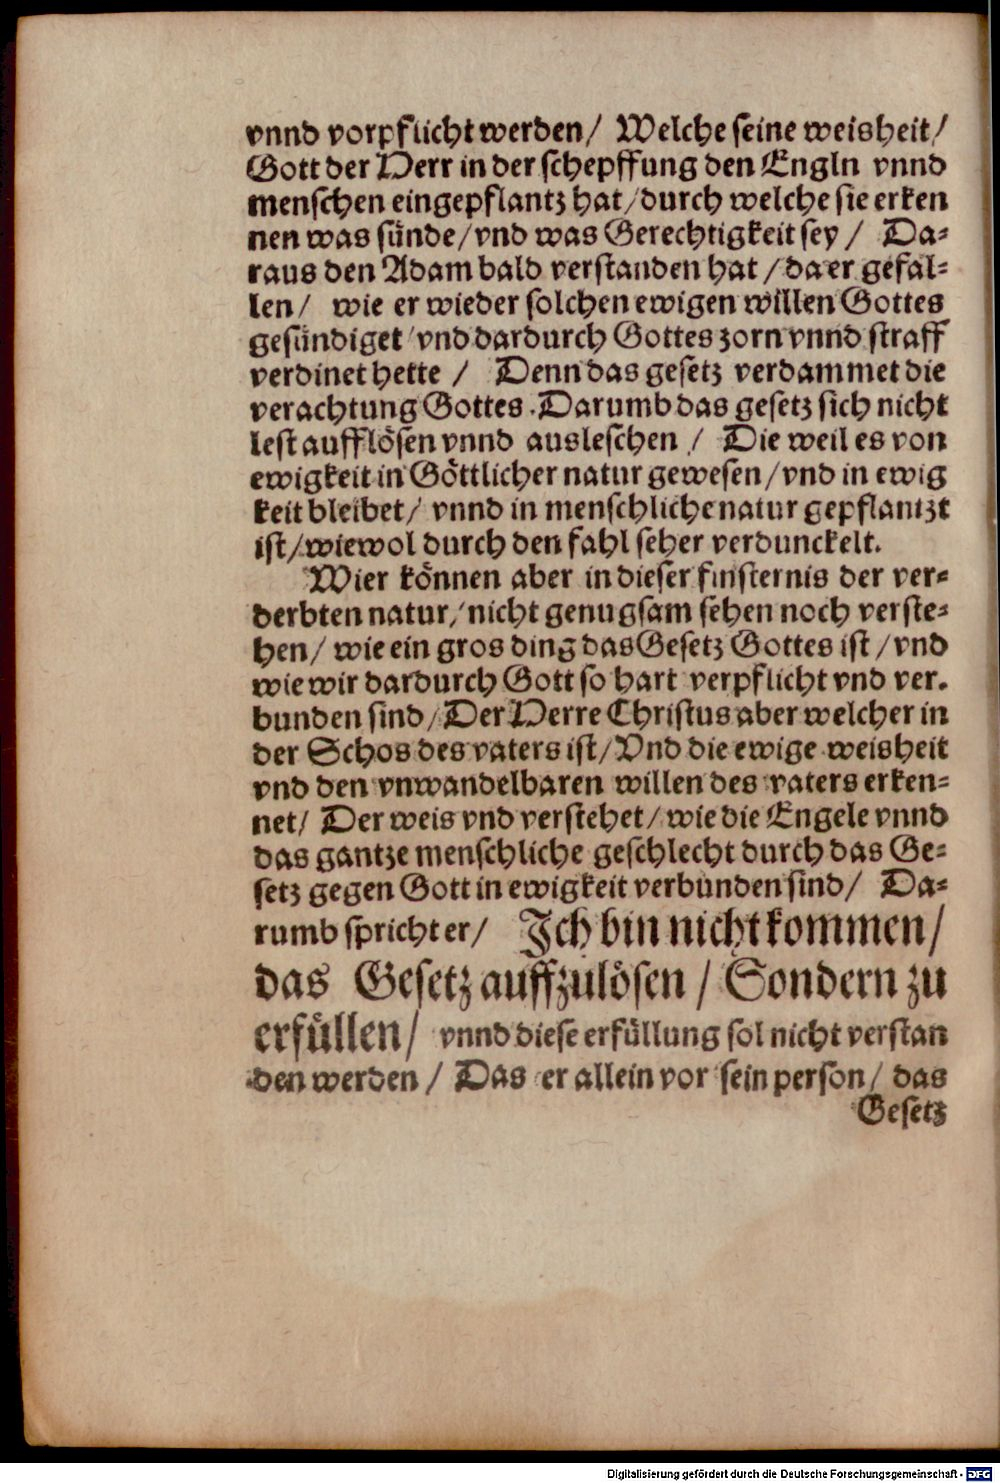 vnnd vorpflicht werden/ Welche seine weisheit/
Gott der Herr in der schepffung den Engln vnnd
menschen eingepflantz hat/durch welche sie erken
nen was sünde/vnd was Gerechtigkeit sey/ Da-
raus den Adam bald verstanden hat/da er gefal-
len/ wie er wieder solchen ewigen willen Gottes
gesündiget/vnd dardurch Gottes zorn vnnd straff
verdinet hette/ Denn das gesetz verdammet die
verachtung Gottes. Darumb das gesetz sich nicht
lest aufflösen vnnd ausleschen/ Die weil es von
ewigkeit in Göttlicher natur gewesen/vnd in ewig
keit bleibet/ vnnd in menschliche natur gepflantzt
ist/wiewol durch den fahl seher verdunckelt.
Wier können aber in dieser finsternis der ver-
derbten natur/nicht genugsam sehen noch verste-
hen/ wie ein gros ding das Gesetz Gottes ist/vnd
wie wir dardurch Gott so hart verpflicht vnd ver.
bunden sind/Der Herre Christus aber welcher in
der Schos des vaters ist/Vnd die ewige weisheit
vnd den vnwandelbaren willen des vaters erken-
net/ Der weis vnd verstehet/wie die Engele vnnd
das gantze menschliche geschlecht durch das Ge-
setz gegen Gott in ewigkeit verbunden sind/ Da-
rumb spricht er/ Ich bin nicht kommen/
das Gesetz auffzulösen/ Sondern zu
erfüllen/ vnnd diese erfüllung sol nicht verstan
den werden/ Das er allein vor sein person/ das
Gesetz
Digitalisierung gefördert durch die Deutsche Forschungsgemeinschaft - DFG